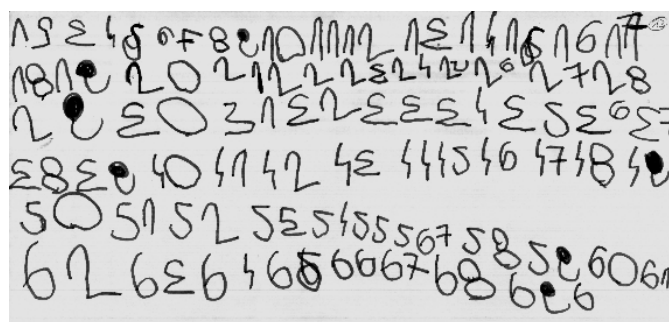 1 2 3 4 5 6 7 8 9 10 11 12 13 14 15 16 17
18 19 20 21 22 23 24 25 26 27 28
29 30 31 32 33 34 35 36 37
38 39 40 41 42 43 44 45 46 47 48 49
50 51 52 53 54 55 56 7 58 59 60 61
62 63 64 65 66 67 68 69 6